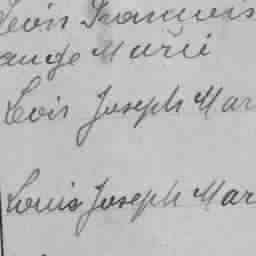 Léon Francois
ange Marie
Lois Joseph Mar
Louis Joseph Mar